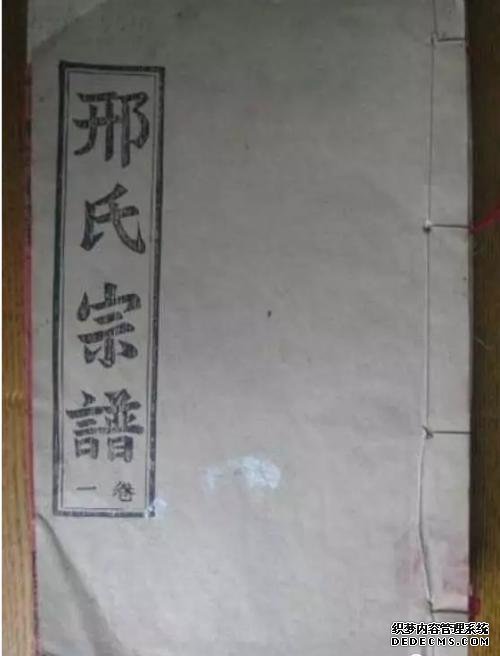 邢氏宗譜
卷一
织梦内容管理系统
DEDECMS.COM